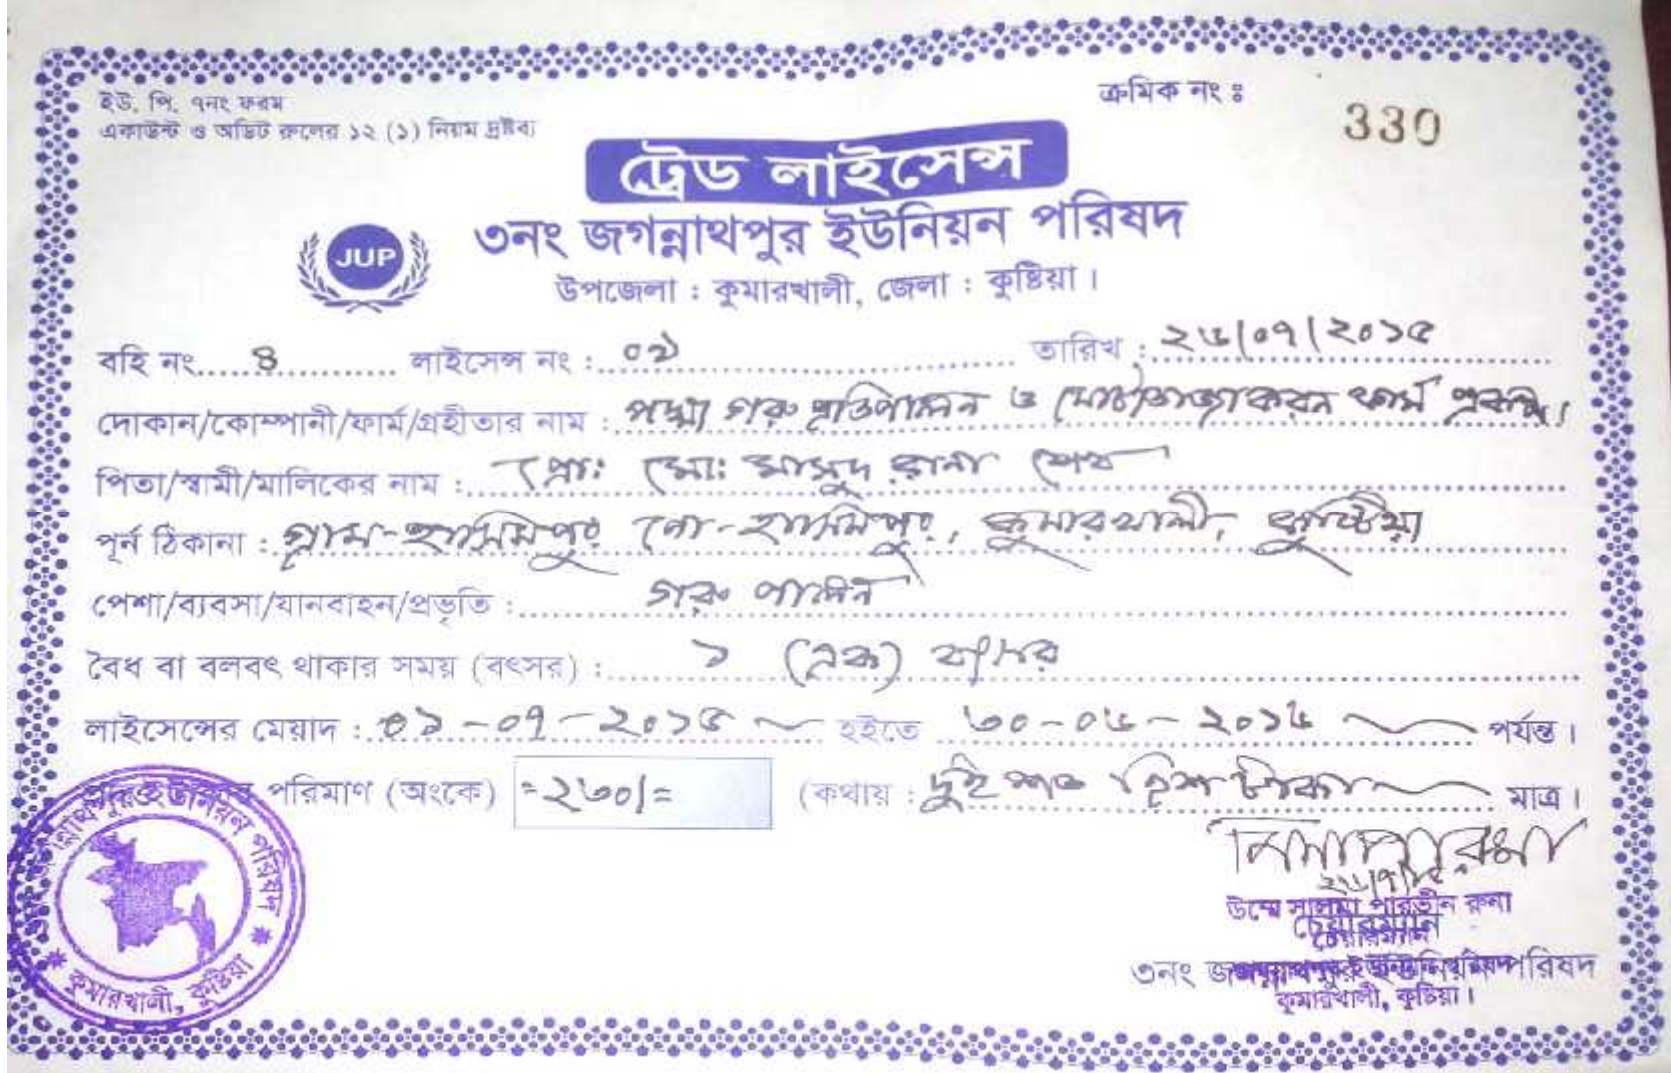 ইউ, পি, ৭নং ফরম
একাউন্ট ও অডিট রুলের ১২ (১) নিয়ম দ্রষ্টব্য
ক্রমিক নং ঃ 330
ট্রেড লাইসেন্স
৩নং জগন্নাথপুর ইউনিয়ন পরিষদ
JUP
উপজেলা : কুমারখালী, জেলা : কুষ্টিয়া ।
বহি নং.....৪............ লাইসেন্স নং : ০১ তারিখ : ২৬/০৭/২০১৫
দোকান/কোম্পানী/ফার্ম/গ্রহীতার নাম : পদ্মা গরু প্রতিপালন ও মোটাতাজাকরন ফার্ম প্রকল্প।
পিতা/স্বামী/মালিকের নাম : প্রো: মো: মাসুদ রানা শেখ
পূর্ন ঠিকানা : গ্রাম-হাসিমপুর পো-হাসিমপুর, কুমারখালী, কুষ্টিয়া
পেশা/ব্যবসা/যানবাহন/প্রভৃতি : গরু পালন
বৈধ বা বলবৎ থাকার সময় (বৎসর) : ১ (এক) বৎসর
লাইসেন্সের মেয়াদ : ০১-০৭-২০১৫ হইতে ৩০-০৬-২০১৬ পর্যন্ত ।
পরিমাণ (অংকে) =২৩০/= (কথায় : দুই শত ত্রিশ টাকা মাত্র ।
২৬/৭/১৫
উম্মে সালমা পারভীন রুনা
চেয়ারম্যান
৩নং জগন্নাথপুর ইউনিয়ন পরিষদ
কুমারখালী, কুষ্টিয়া ।
জগন্নাথপুর ইউনিয়ন পরিষদ
কুমারখালী, কুষ্টিয়া